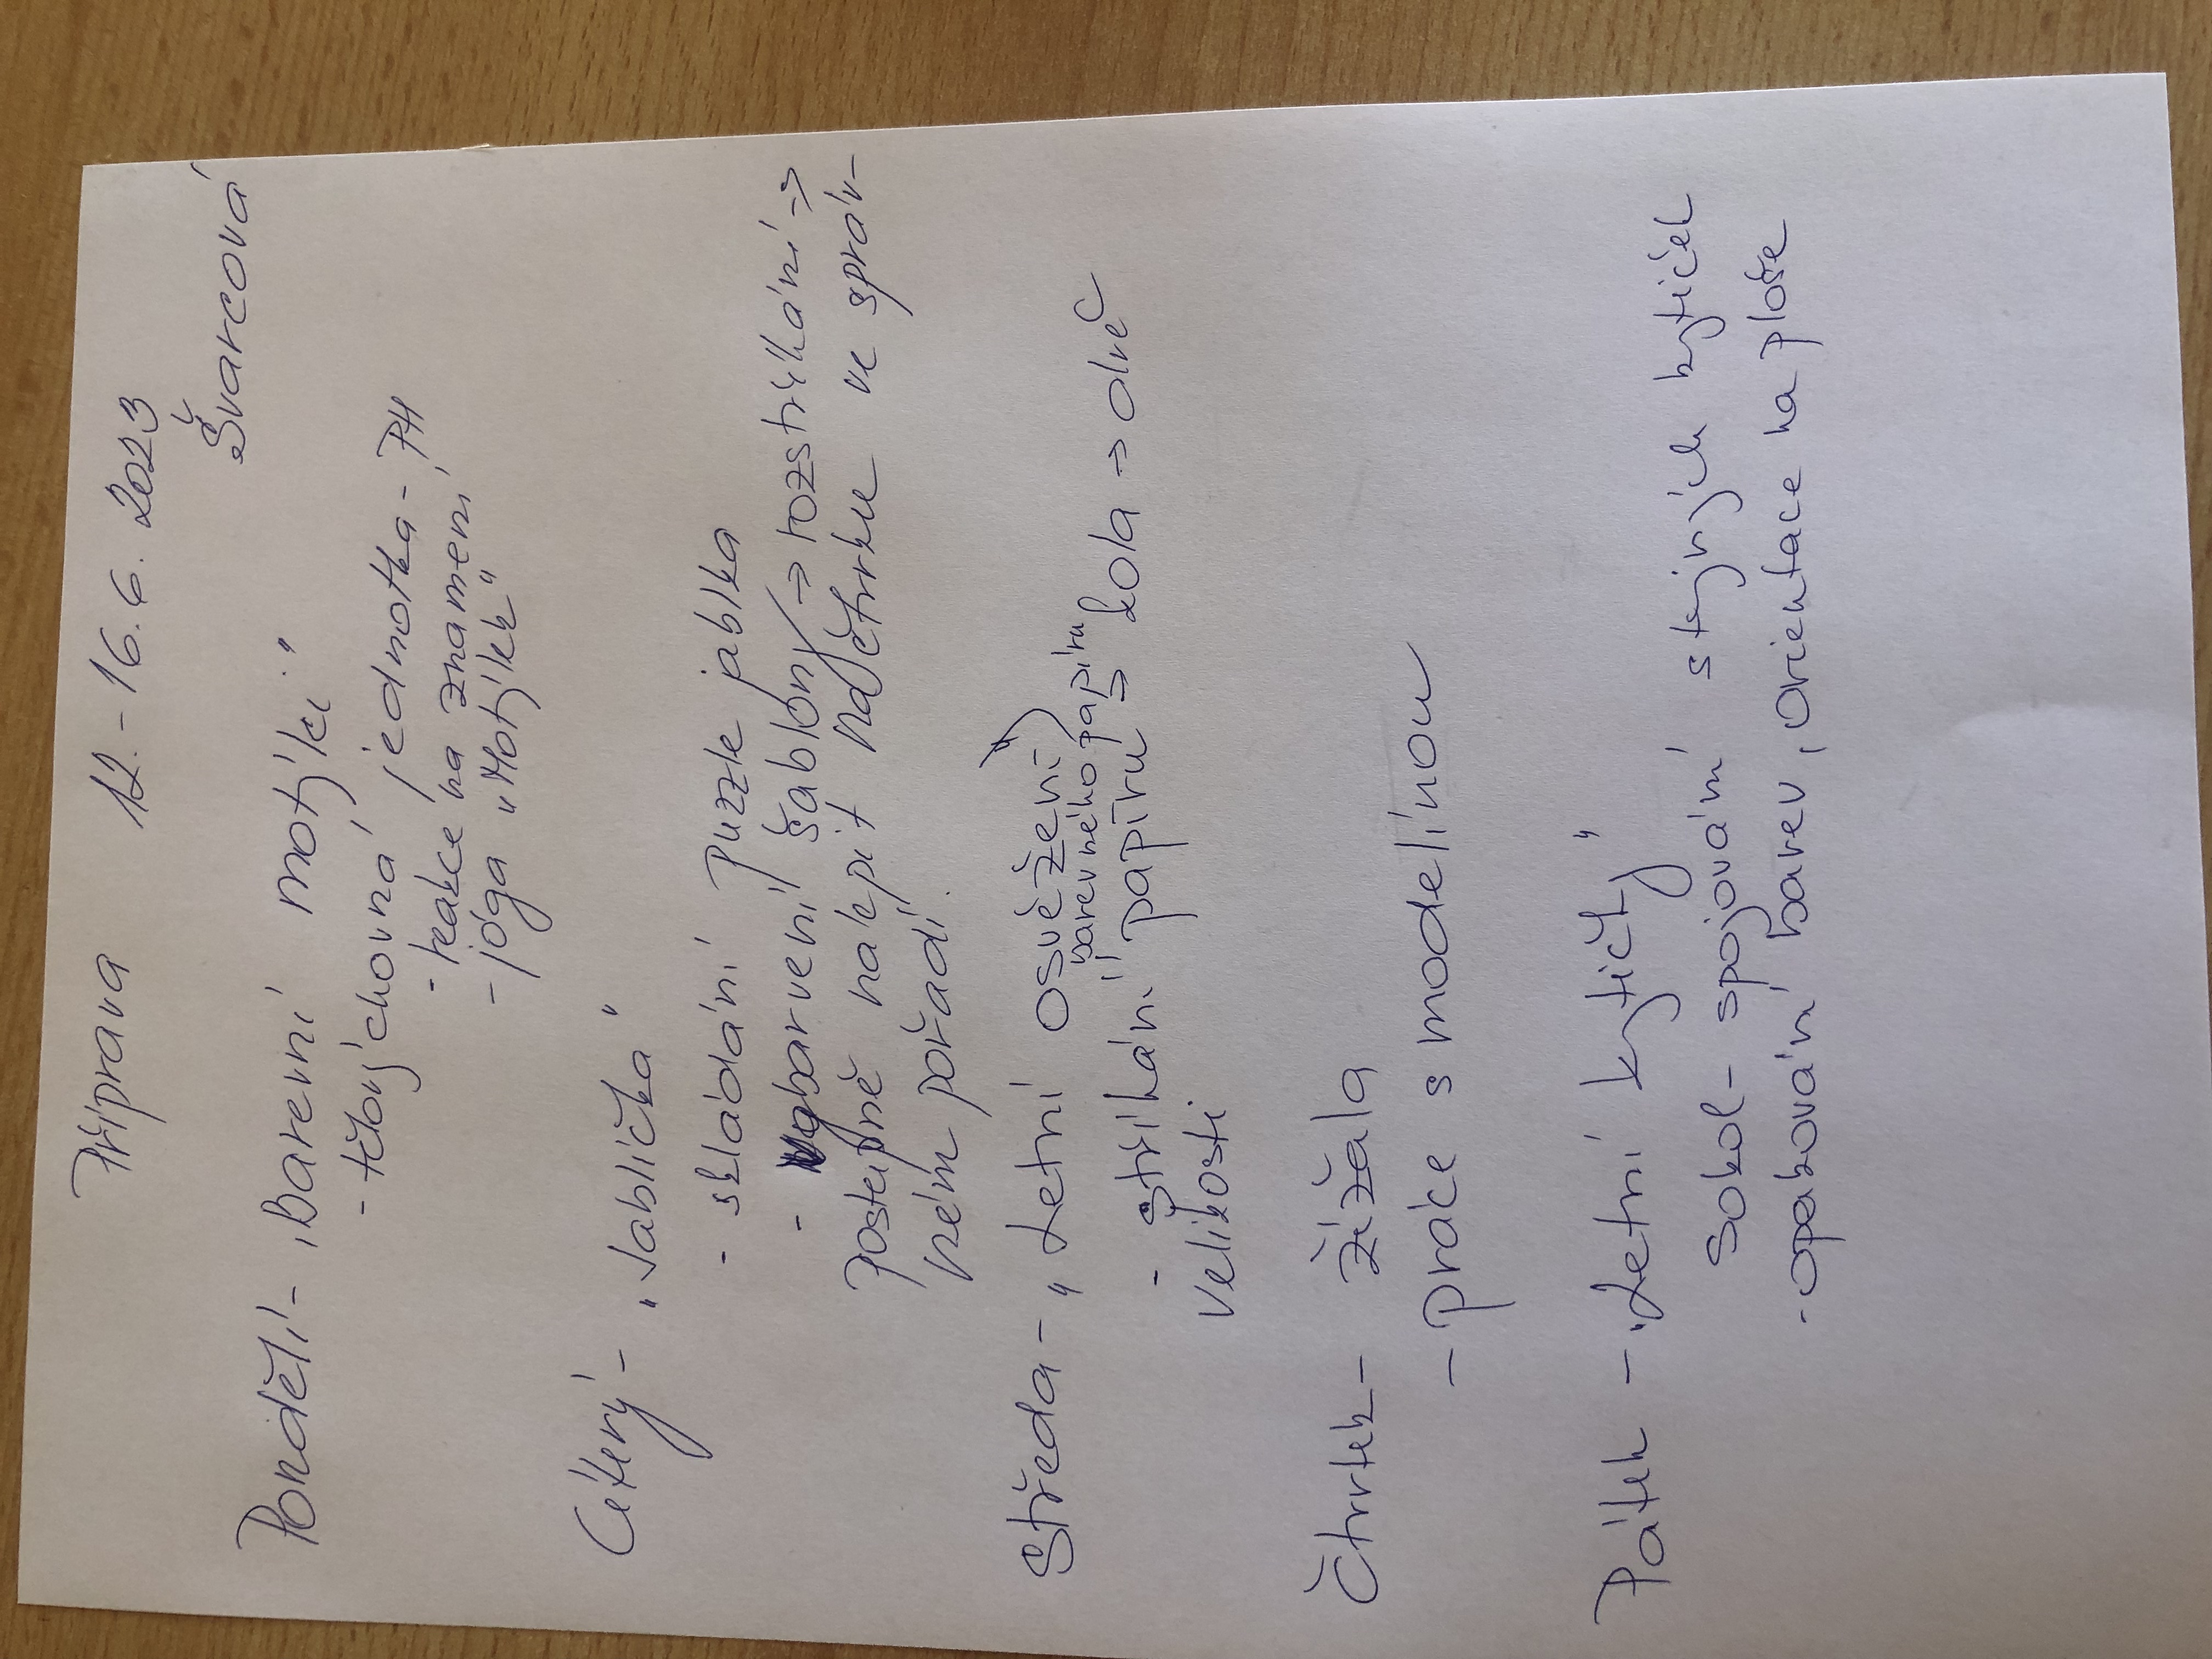 Příprava 12.-16.6.2023
Švarcová
Pondělí - "Barevní motýlci"
- tělovýchovná jednotka - PH
- reakce na znamení
- jóga "Motýlek"
Úterý - "Jablíčka"
- skládání puzzle jablka
- vybarvení šablony → rozstříkání →
postupně nalepit na čtvrtku ve správ-
ném pořadí.
Středa - "Letní osvěžení"
barevného papíru
- stříkání papíru → kola → dle
velikosti
Čtvrtek - žížala
- práce s modelínou
Pátek - "Letní kytičky"
Sokol - spojování stejných kytiček
- opakování barev, orientace na ploše